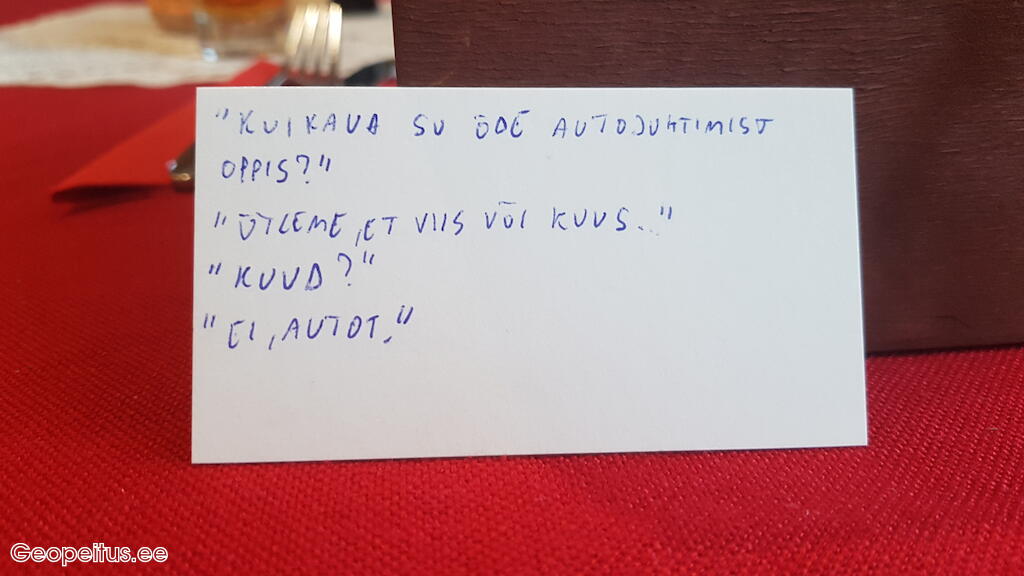 "KUI KAUA SU ÕDE AUTOJUHTIMIST
ÕPPIS?"
"ÜTLEME, ET VIIS VÕI KUUS..."
"KUUD?"
"EI, AUTOT."
Geopeitus.ee